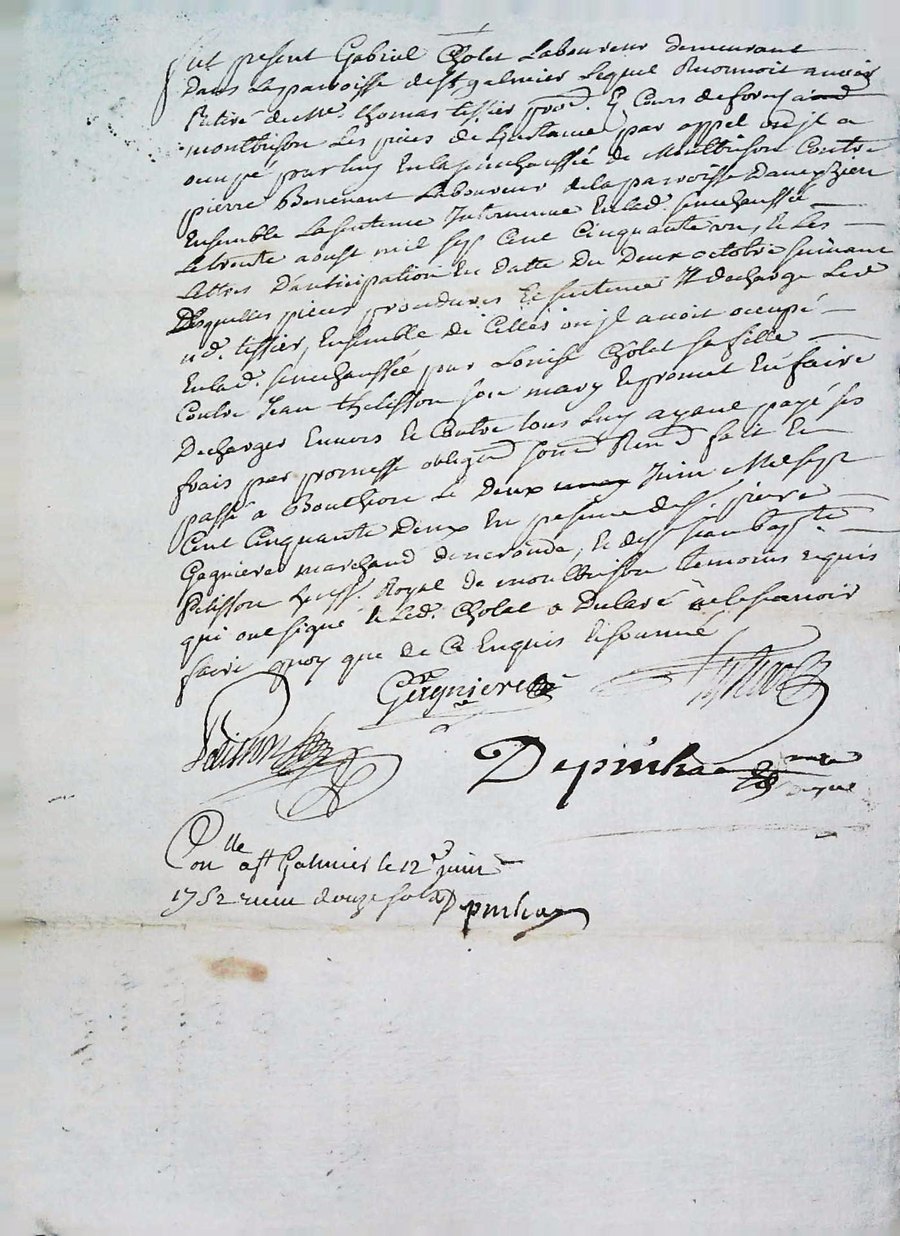 fut present Gabriel Cholet Laboureur demeurant
dans La paroisse de st galmier Lequel Reconnoit avoir
Retiré de Me. thomas tissier procr. Es Cours de forez a
montbrison Les pieces de Linstance par appel ou jl a
ocupé pour luy En la senechaussée de Montbrison Contre
pierre Bonenant Laboureur de la paroisse Daveyzieu
Ensemble La sentence Intervenue En lad. senechaussée
Le trente aoust mil sept Cent Cinquante un, et Les
Lettres Danticipation En datte du Deux octobre suivant
Desquelles pieces procedures Et sentences Il decharge Led
tissier, Ensemble de Celles ou jl avoit occupé
En lad. senechaussée pour Louise Cholet sa fille
Contre Jean thelisson son mary Et promet En faire
Decharger Envers Et Contre tous Luy ayant payé ses
frais par promesse obligon soumon Renon fait Et
passé a Bouthéon Le Deux Juin Mil sept
Cent Cinquante Deux En presence de sr. pierre
Gagniere marchand demeurant, et de sr Jean baptte
Pelisson huissr. Royal de montbrison temoins requis
qui ont signé et Led. Cholet a Declaré ne le scavoir
faire quoy que de Ce Enquis Et sommé
Gagniere tissier
Pelisson
Depinhac nre
Royal
Conlle a st Galmier le 12e juin
1752 recu douze sols Depinhac